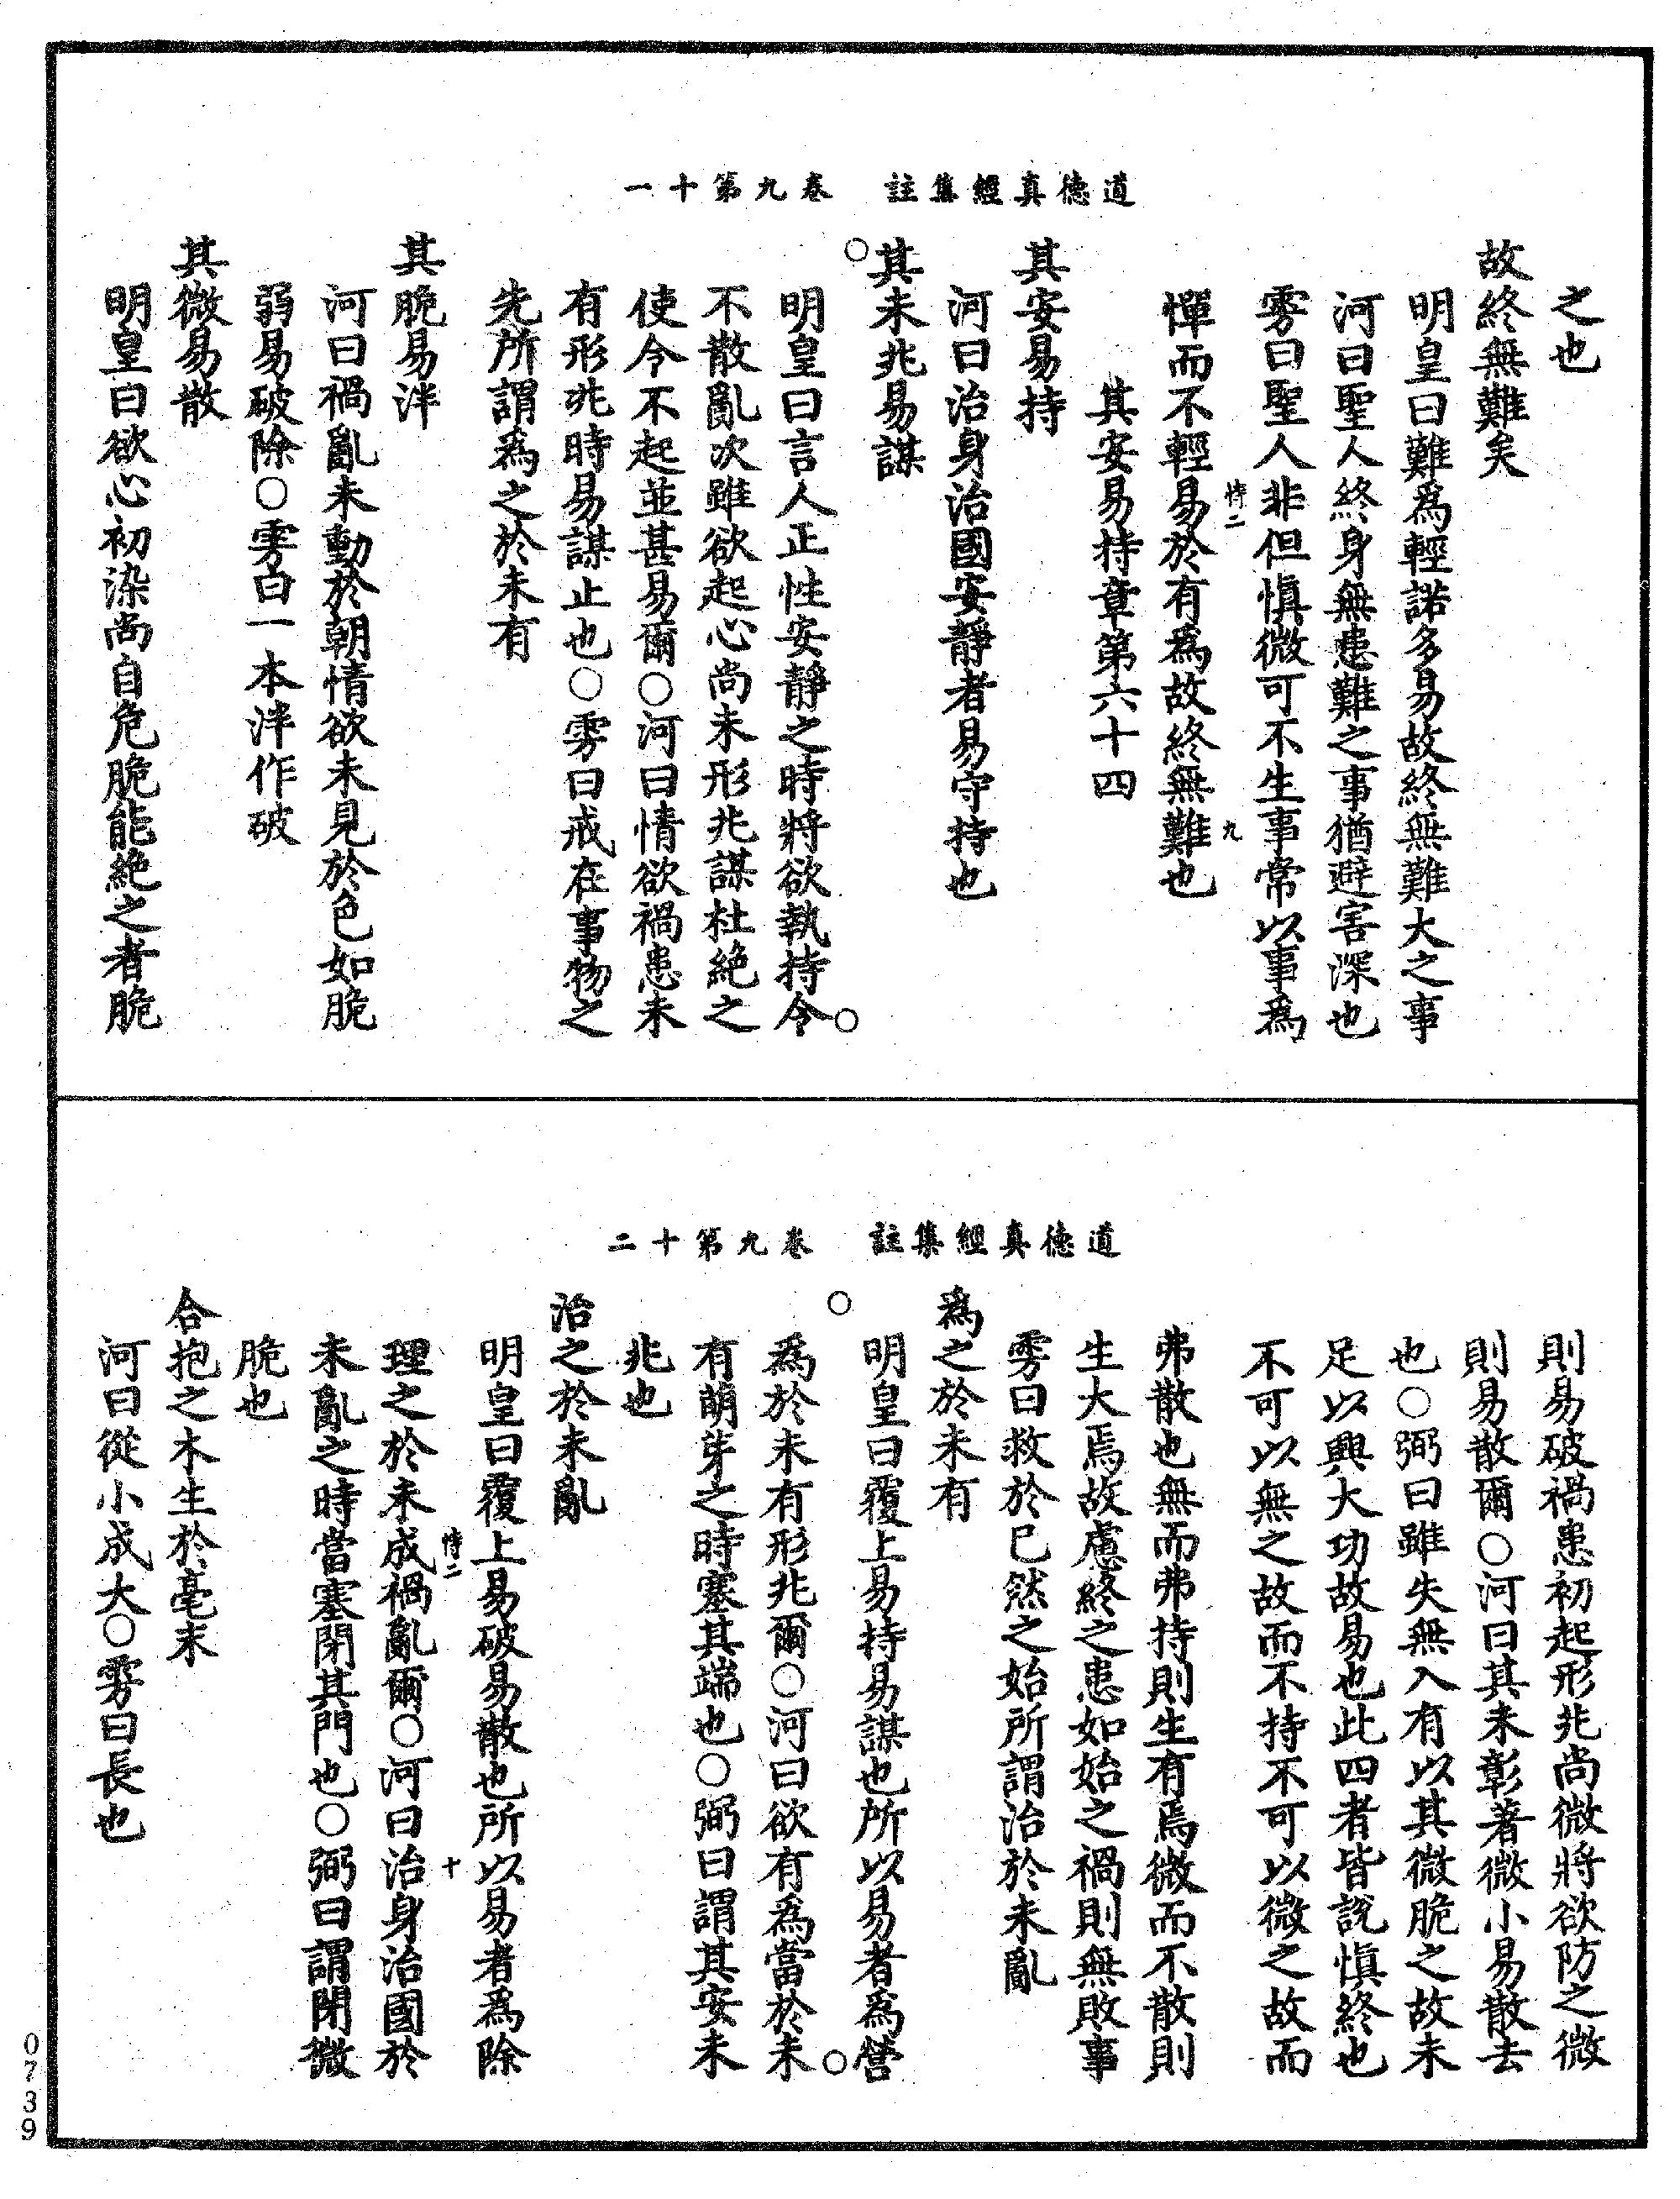 道德真經集註　卷九第十一
之也
故終無難矣
明皇曰難爲輕諾多易故終無難大之事
河曰聖人終身無患難之事猶避害深也
雱曰聖人非但慎微可不生事常以事爲
惲而不輕易於有爲故終無難也
悑二　九
其安易持章第六十四
其安易持
河曰治身治國安靜者易守持也
其未兆易謀
明皇曰言人正性安靜之時將欲執持令
不散亂次雖欲起心尚未形兆謀杜絶之
使令不起並甚易爾○河曰情欲禍患未
有形兆時易謀止也○雱曰戒在事物之
先所謂爲之於未有
其脆易泮
河曰禍亂未動於朝情欲未見於色如脆
弱易破除○雱曰一本泮作破
其微易散
明皇曰欲心初染尚自危脆能絶之者脆
道德真經集註　卷九第十二
則易破禍患初起形兆尚微將欲防之微
則易散爾○河曰其未彰著微小易散去
也○弼曰雖失無入有以其微脆之故未
足以興大功故易也此四者皆說慎終也
不可以無之故而不持不可以微之故而
弗散也無而弗持則生有焉微而不散則
生大焉故慮終之患如始之禍則無敗事
雱曰救於已然之始所謂治於未亂
爲之於未有
明皇曰覆上易持易謀也所以易者爲營
爲於未有形兆爾○河曰欲有爲當於未
有萌芽之時塞其端也○弼曰謂其安未
兆也
治之於未亂
明皇曰覆上易破易散也所以易者爲除
理之於未成禍亂爾○河曰治身治國於
悑二　十
未亂之時當塞閉其門也○弼曰謂閉微
脆也
合抱之木生於毫末
河曰從小成大○雱曰長也
0739